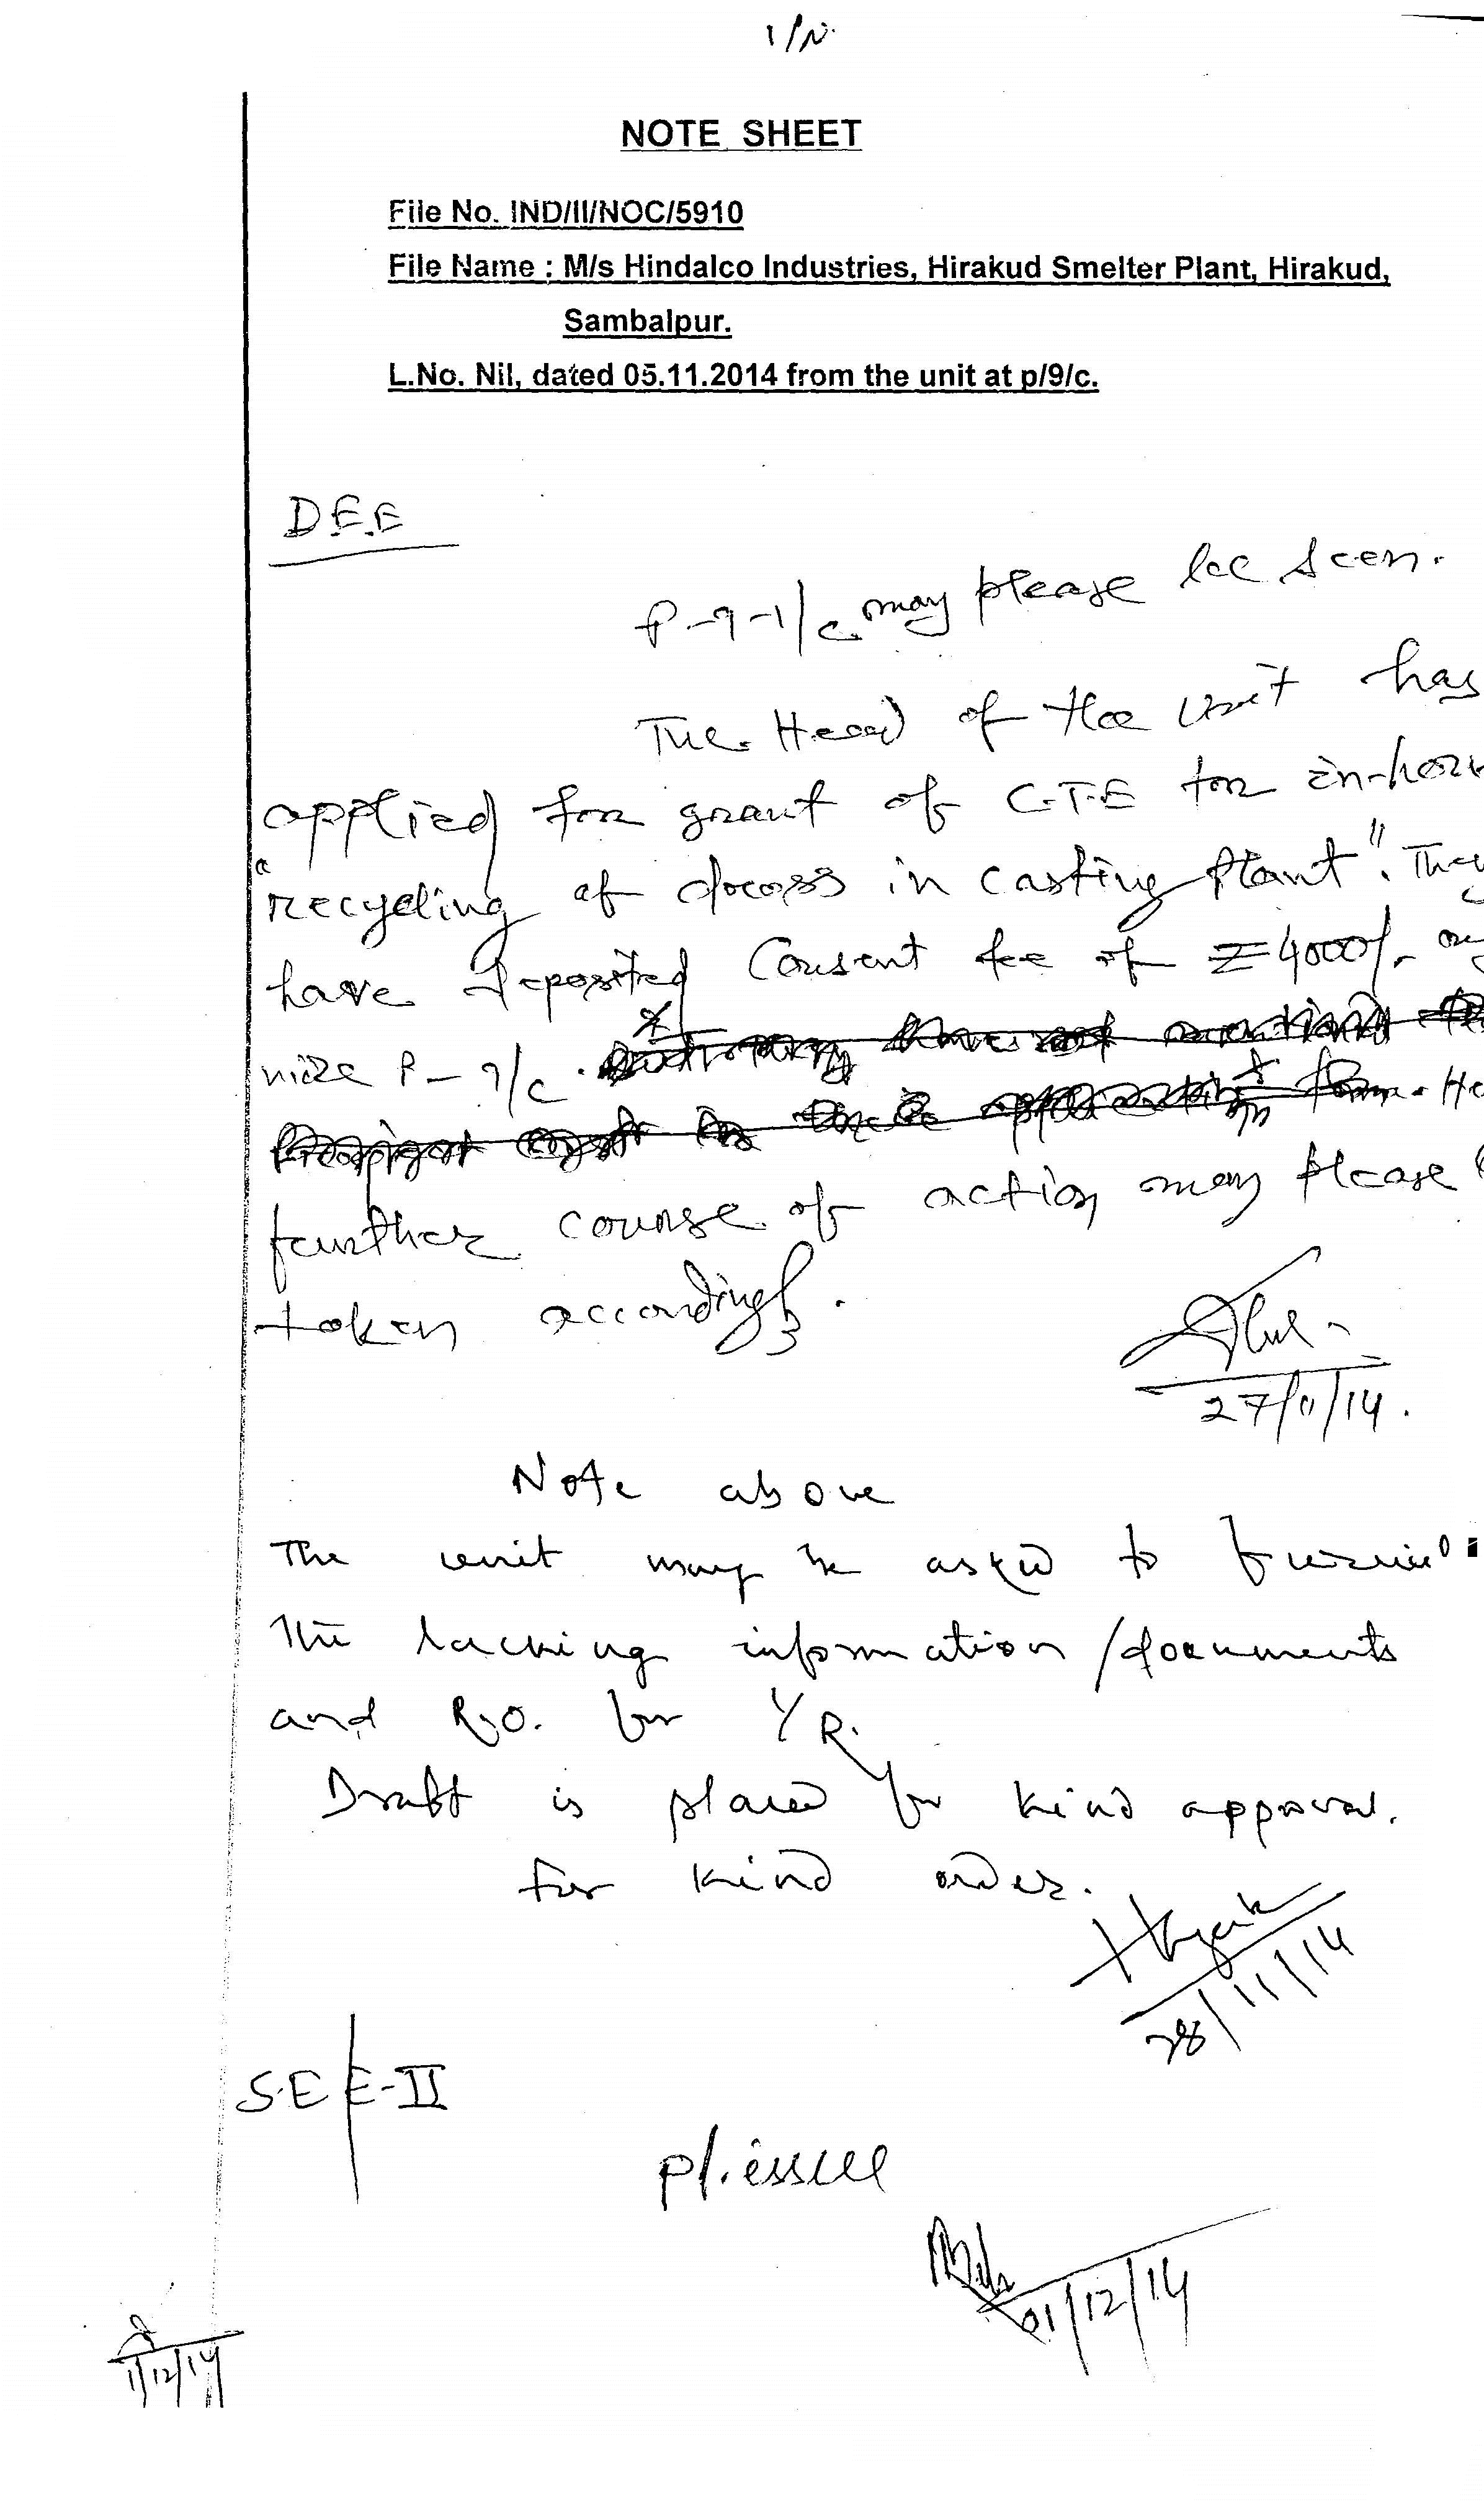 1/N.
NOTE SHEET
File No. IND/II/NOC/5910
File Name : M/s Hindalco Industries, Hirakud Smelter Plant, Hirakud,
Sambalpur.
L.No. Nil, dated 05.11.2014 from the unit at p/9/c.
DEE
P-9-1/c may please be seen.
The Head of the unit has
applied for grant of C.T.E for in-hou
"recycling of dross in casting plant". They
have deposited Consent fee of ₹4000/-
vide P-9/c.
further course of action may please
taken accordingly.
27/11/14.
Note above
The unit may be asked to furnish
the lacking information/documents
and R.O. for I/R.
Draft is placed for kind approval.
For kind order.
28/11/14
SEE-II
pl. issue
01/12/14
1/12/14